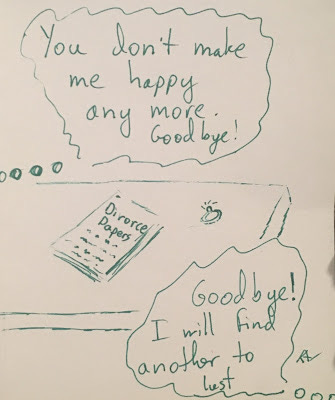 You don't make
me happy
any more.
Goodbye!
Divorce
Papers
Goodbye!
I will find
another to